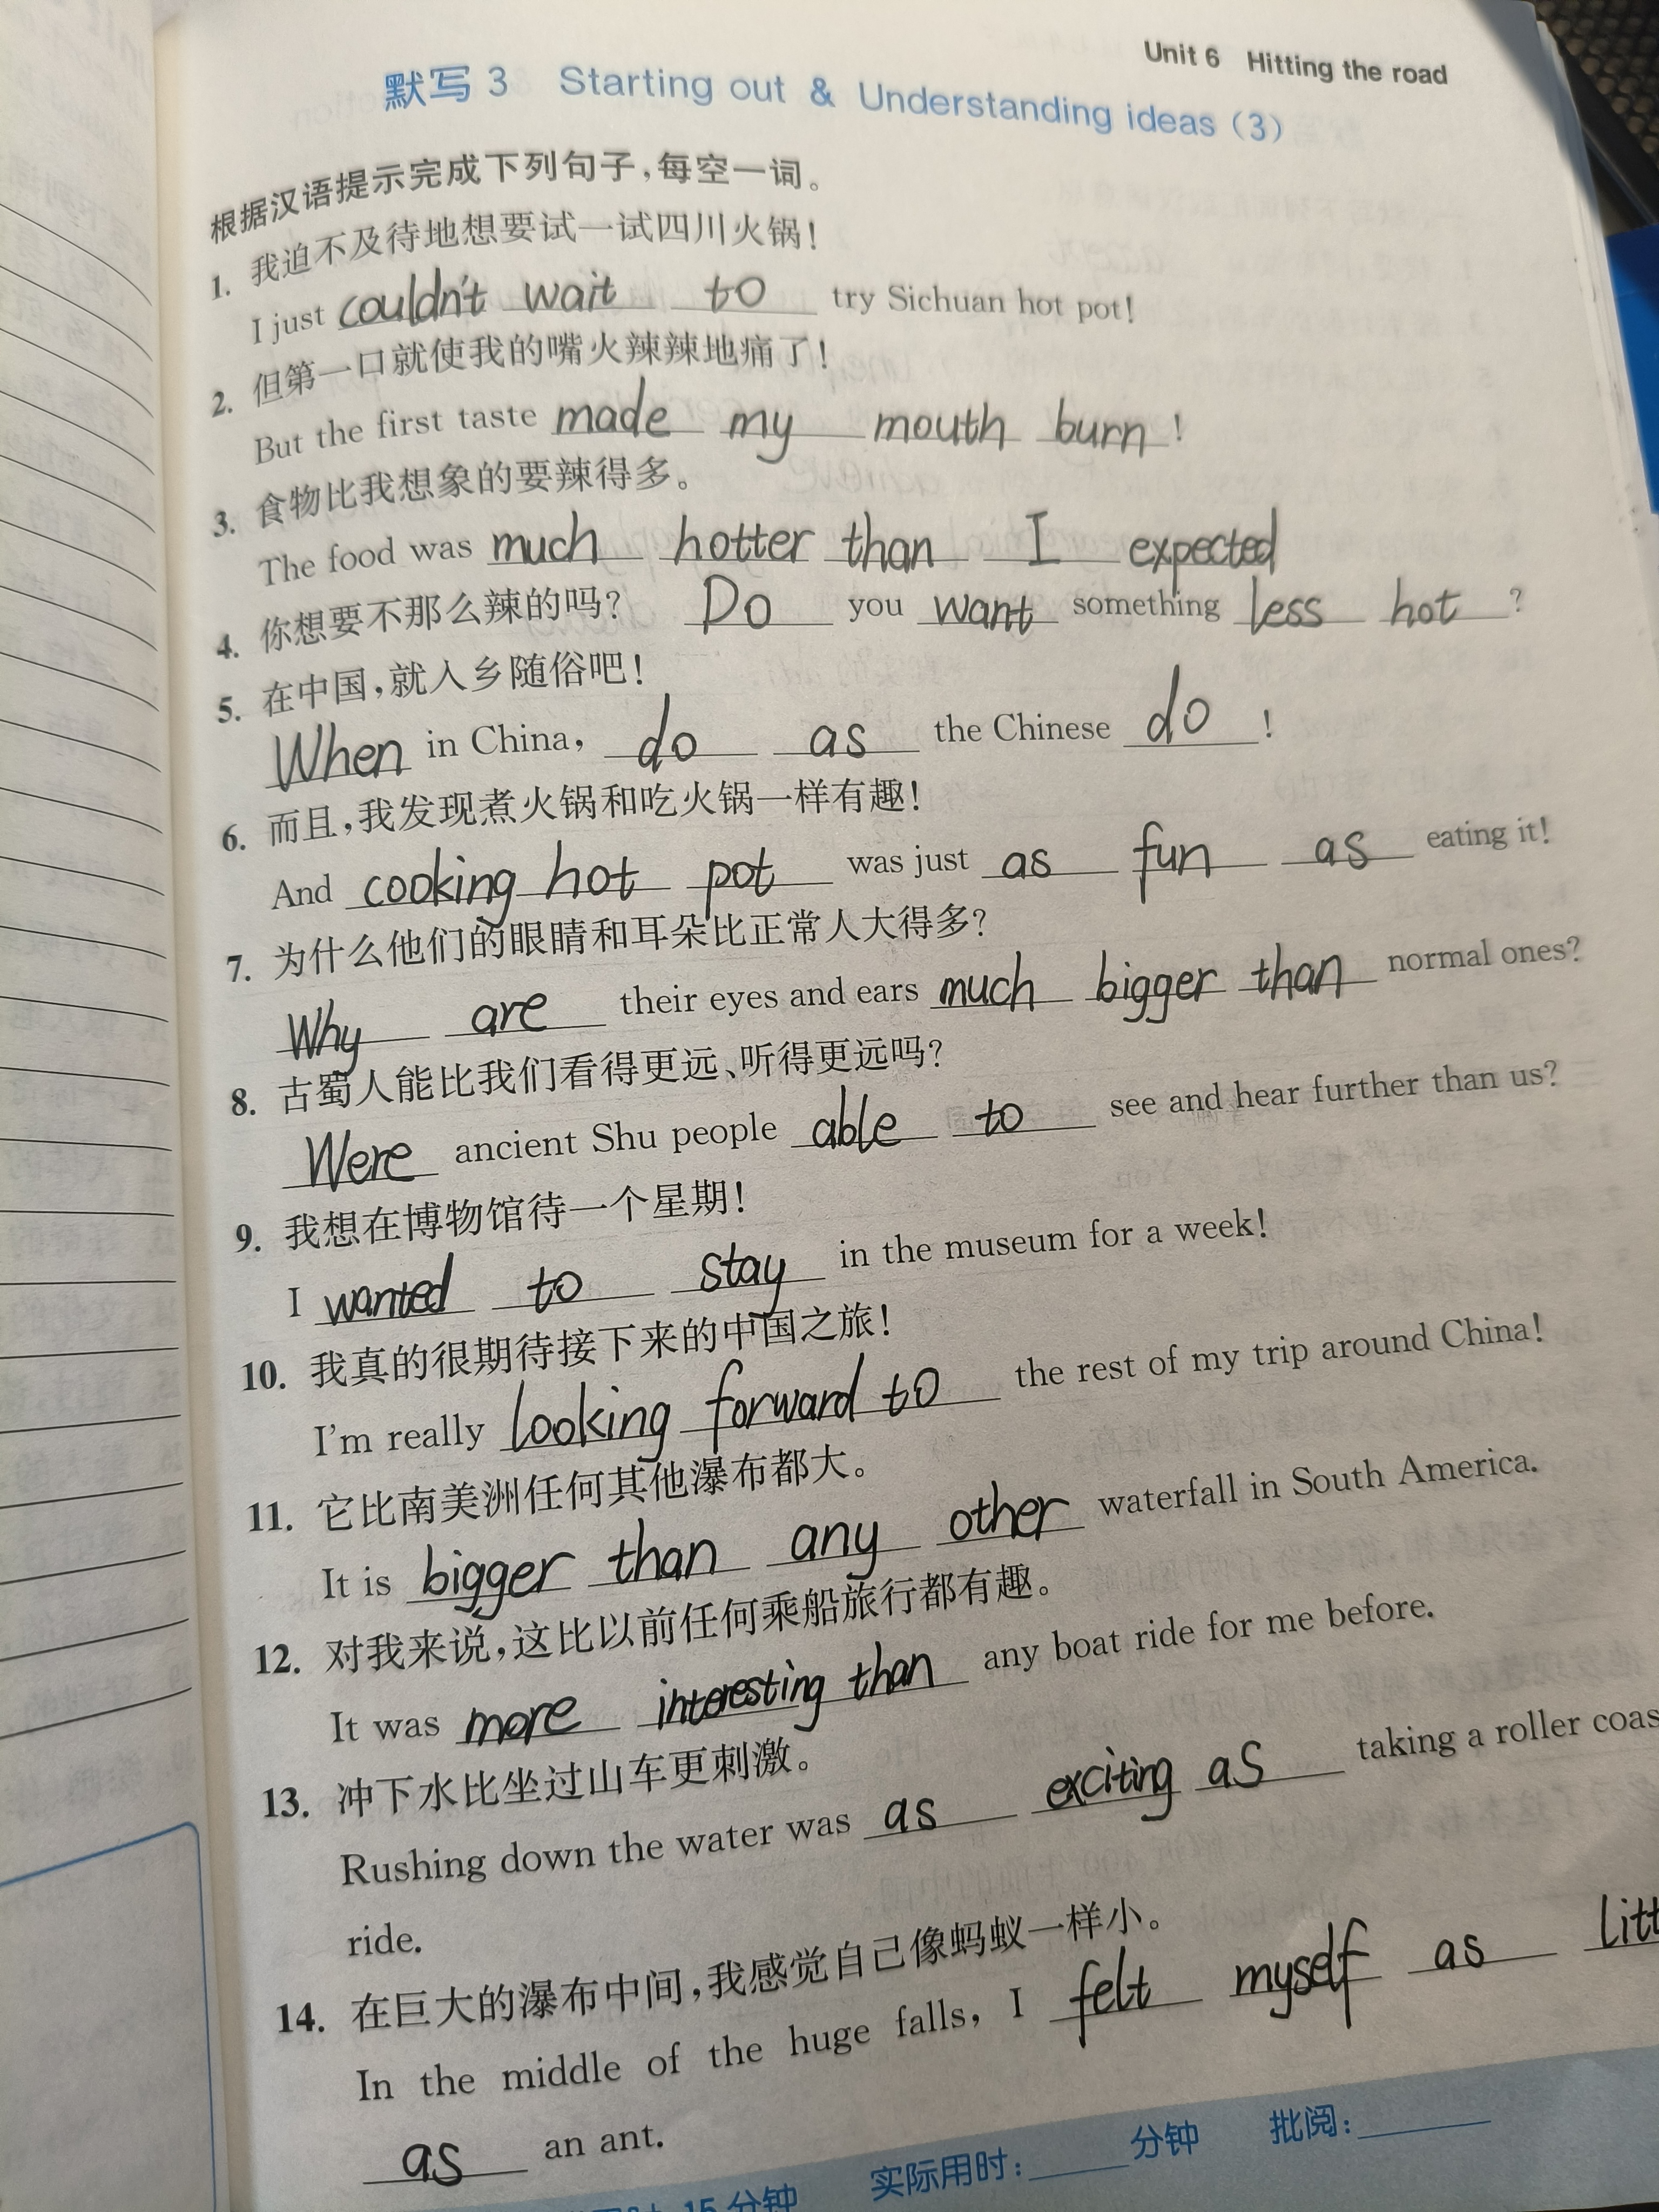 Unit 6 Hitting the road
默写 3 Starting out & Understanding ideas (3)
根据汉语提示完成下列句子,每空一词。
1. 我迫不及待地想要试一试四川火锅!
I just couldn't wait to try Sichuan hot pot!
2. 但第一口就使我的嘴火辣辣地痛了!
But the first taste made my mouth burn!
3. 食物比我想象的要辣得多。
The food was much hotter than I expected
4. 你想要不那么辣的吗? Do you want something less hot?
5. 在中国,就入乡随俗吧!
When in China, do as the Chinese do!
6. 而且,我发现煮火锅和吃火锅一样有趣!
And cooking hot pot was just as fun as eating it!
7. 为什么他们的眼睛和耳朵比正常人大得多?
Why are their eyes and ears much bigger than normal ones?
8. 古蜀人能比我们看得更远、听得更远吗?
Were ancient Shu people able to see and hear further than us?
9. 我想在博物馆待一个星期!
I wanted to stay in the museum for a week!
10. 我真的很期待接下来的中国之旅!
I'm really looking forward to the rest of my trip around China!
11. 它比南美洲任何其他瀑布都大。
It is bigger than any other waterfall in South America.
12. 对我来说,这比以前任何乘船旅行都有趣。
It was more interesting than any boat ride for me before.
13. 冲下水比坐过山车更刺激。
Rushing down the water was as exciting as taking a roller coas
ride.
14. 在巨大的瀑布中间,我感觉自己像蚂蚁一样小。
In the middle of the huge falls, I felt myself as litt
as an ant.
15 分钟 实际用时:____分钟 批阅:____